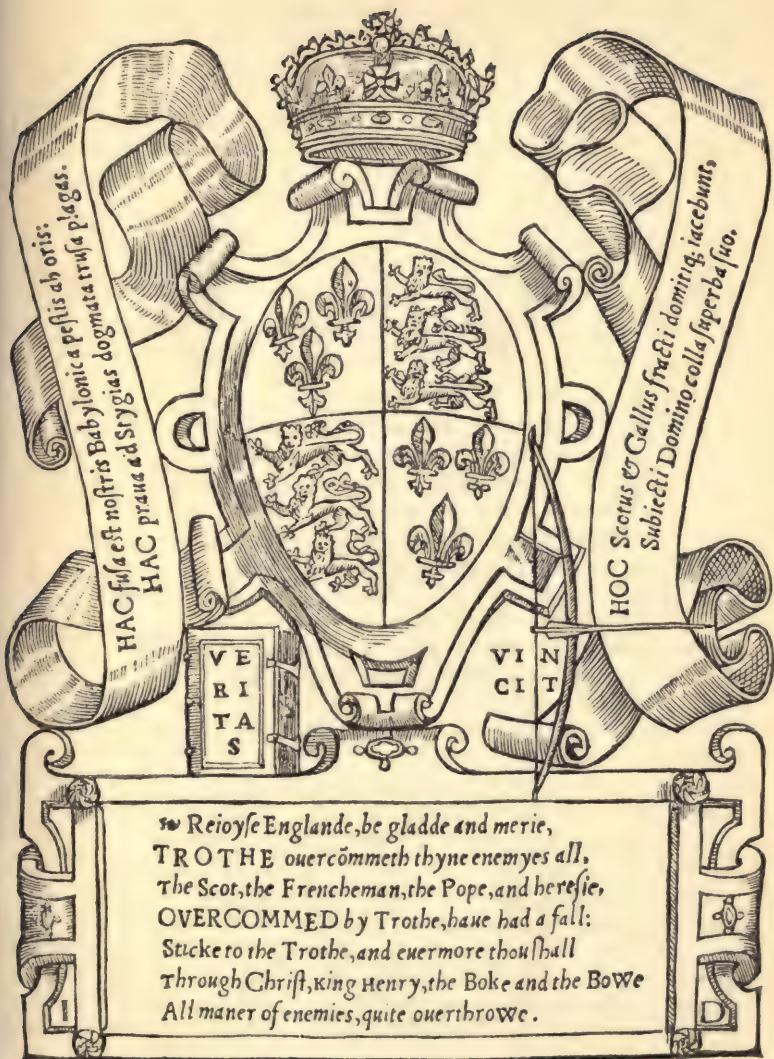 HAC fuſa est noſtris Babylonica peſtis ab oris:
HAC praua ad Stygias dogmata truſa plagas.
HOC Scotus & Gallus fracti domitiq; iacebunt,
Subiecti Domino colla ſuperba ſuo.
VE
RI
TA
S
VIN
CIT
Reioyſe Englande, be gladde and merie,
TROTHE ouercõmmeth thyne enemyes all,
The Scot, the Frencheman, the Pope, and hereſie,
OVERCOMMED by Trothe, haue had a fall:
Sticke to the Trothe, and euermore thou ſhall
Through Chriſt, King Henry, the Boke and the Bowe
All maner of enemies, quite ouerthrowe.
I D